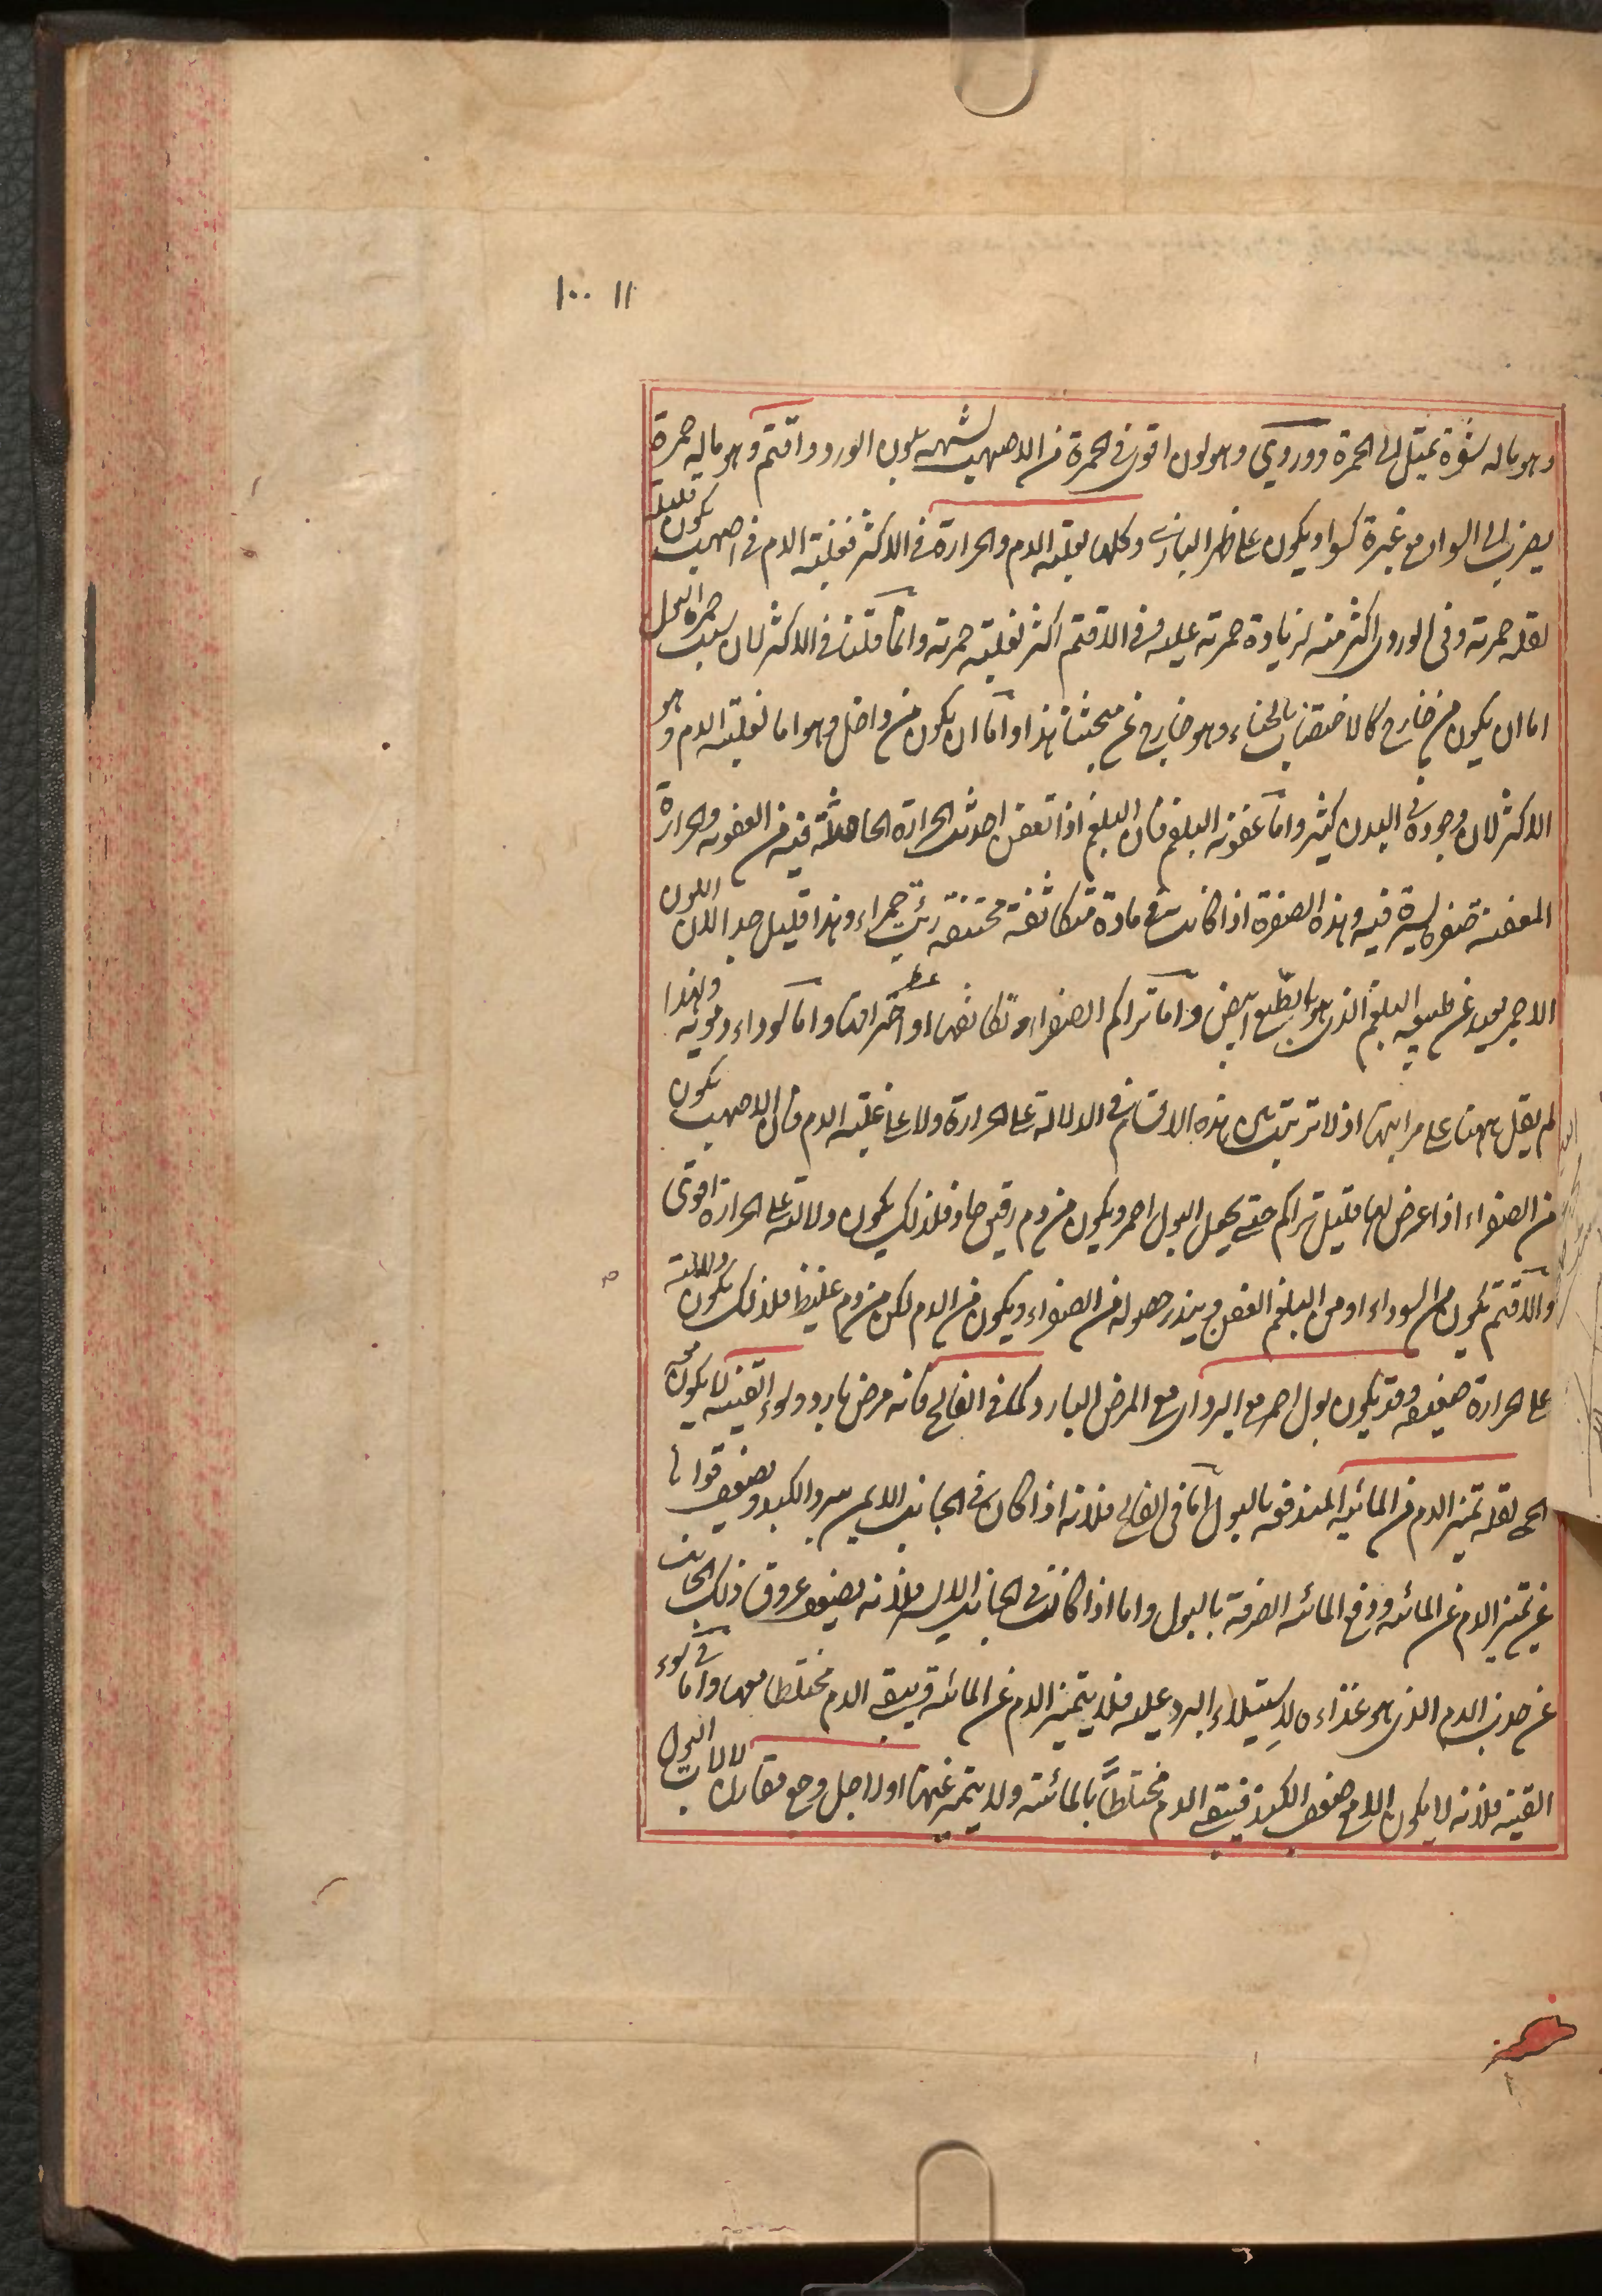 ١٠٠ ١١
وهو ما له شقرة تميل الى الحمرة ووردى وهو لون اقوى فى الحمرة من الاصهب لشبهه بلون الورد واقتم وهو ماله حمرة
يضرب الى السواد مع غبرة كسواد يكون على ظهر البازى وكلها لغلبة الدم والحرارة فى الاكثر فغلبة الدم فى اصهب يكون قليلة
لقلة حمرته وفى الوردى اكثر منه لزيادة حمرته عليه وفى الاقتم اكثر لغلبة حمرته وانما قلنا فى الاكثر لان سبب حمرة البول
اما ان يكون من خارج كالاختضاب بالحناء وهو خارج عن مبحثنا هذا واما ان يكون من داخل وهو اما لغلبة الدم وهو
الاكثر لان وجوده فى البدن كثير واما عفونة البلغم فان البلغم اذا تعفن احدثت الحرارة الحاصلة فيه من العفونة والحرارة
المعفنة صفرة يسيرة فيه وهذه الصفرة اذا كانت فى مادة متكاثفة مختنقة رئيت حمراء وهذا قليل جدا لان اللون
الاحمر بعيد عن طبيعة البلغم الذى هو بالطبع ابيض واما تراكم الصفراء وتكاثفها او احتراقها واما سوداء دموية ولهذا
لم يقل ههنا على مراتبها اذ لا ترتيب بين هذه الاقسام فى الدلالة على الحرارة ولا على غلبة الدم فان الاصهب يكون
من الصفراء اذا عرض لها قليل تراكم حتى يجعل البول احمر ويكون من دم رقيق حاد فلذلك يكون دلالته على الحرارة اقوى
والاقتم يكون من السوداء او من البلغم العفن ويندر حصوله من الصفراء ويكون من الدم لكن من دم غليظ فلذلك يكون دلالته
على الحرارة ضعيفة وقد يكون بول احمر مع البرد اى مع المرض البارد كما فى الفالج فانه مرض بارد وسوء القنية لا يكون معه
الحمى لقلة تميز الدم من المائية المندفعة بالبول اما فى الفالج فلانه اذا كان فى الجانب الايمن يبرد الكبد ويضعف قواها
عن تميز الدم عن المائية ودفع المائية الصرفة بالبول واما اذا كانت فى الجانب الايسر فلانه يضعف عروق ذلك الجانب
عن جذب الدم الذى هو غذاءه لاستيلاء البرد عليه فلا يتميز الدم عن المائية فيبقى الدم مختلطا معها واما فى سوء
القنية فلانه لا يكون الا مع ضعف الكبد فيبقى الدم مختلطا بالمائية ولا يتميز عنها او لاجل وجع مقارن لآلات البول